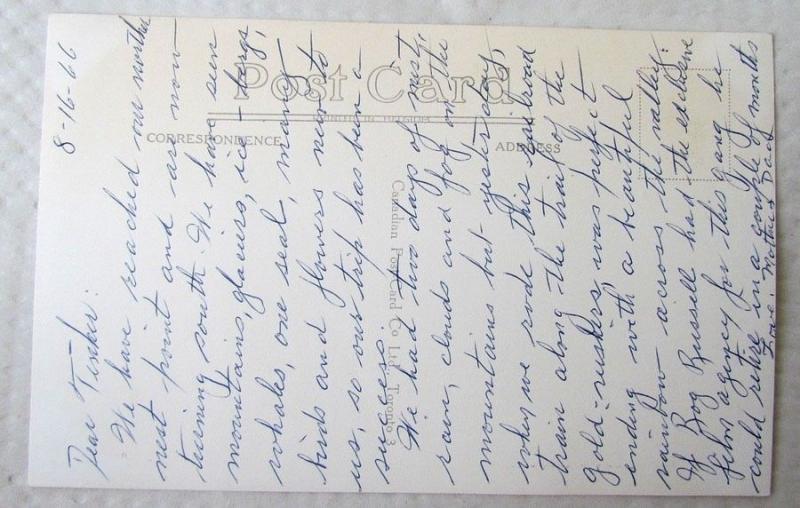 8-16-66
Dear Tinker:
We have reached our northernmost point and are now
turning south. We have seen
mountains, glaciers, ice-bergs,
whales, one seal, many
birds and flowers new to
us, so our trip has been a
success.
We had two days of mist,
rain, clouds and fog on the
mountains but yesterday,
when we rode this railroad
train along the trail of the
gold-rushers was perfect
ending with a beautiful
rainbow across the valley.
If Roy Russell had the exclusive
film agency for this gang he
could retire in a couple of months
Love. Mother & Dad
Post Card
CORRESPONDENCE
ADDRESS
Canadian Post Card Co. Ltd. Toronto 3